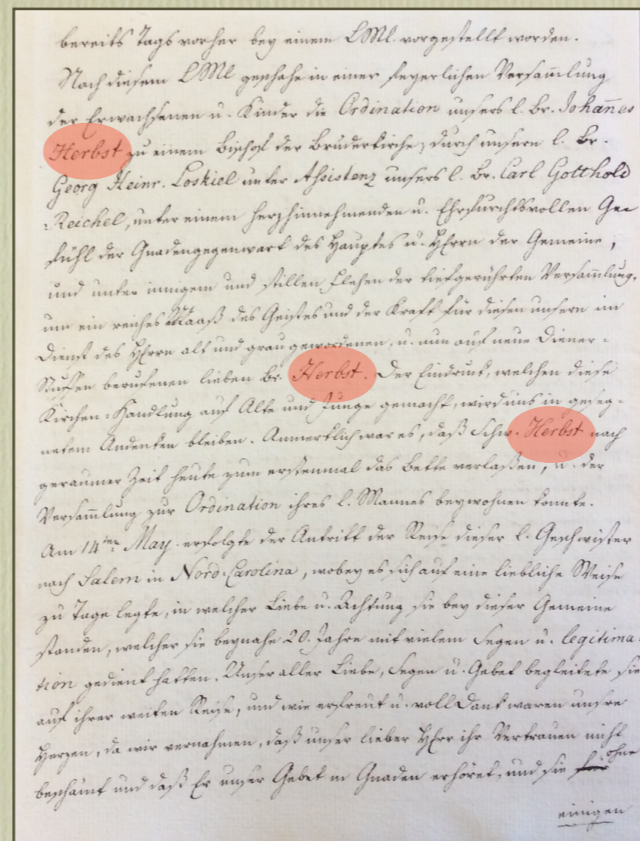 bereits Tags vorher bey einem LMl vorgestellt worden.
Nach diesem LMl geschahe in einer feyerlichen Versammlung
der Erwachsenen u. Kinder die Ordination unsers l. Br. Johannes
Herbst zu einem Bischof der Brüderkirche, durch unsern l. Br.
Georg Heinr. Loskiel unter Assistenz unsers l. Br. Carl Gotthold
Reichel, unter einem herzhinnehmenden u. Ehrfurchtsvollen Ge-
fühl der Gnadengegenwart des Hauptes u. HErrn der Gemeine,
und unter innigem und stillen Flehen der tiefgerührten Versammlung,
um ein reiches Maaß des Geistes und der Kraft für diesen unsern im
Dienst des HErrn alt und grau gewordenen, u. nun auf neue Diener-
Stuffen berufenen lieben Br. Herbst. Der Eindruck, welchen diese
Kirchen-Handlung auf Alte und Junge gemacht, wird uns in geseg-
netem Andenken bleiben. Anmerklich war es, daß Schw. Herbst nach
geraumer Zeit heute zum erstenmal das Bette verlaßen, u. der
Versammlung zur Ordination ihres l. Mannes beywohnen konnte.
Am 14ten May erfolgte der Antritt der Reise dieser l. Geschwister
nach Salem in Nord-Carolina, wobey es sich auf eine liebliche Weise
zu Tage legte, in welcher Liebe u. Achtung sie bey dieser Gemeine
standen, welcher sie beynahe 20. Jahre mit vielem Segen u. legitima-
tion gedient hatten. Unser aller Liebe, Segen u. Gebet begleitete sie
auf ihrer weiten Reise, und wie erfreut u. voll Dank waren unsre
Herzen, da wir vernahmen, daß unser lieber HErr ihr Vertrauen nicht
beschämt und daß Er unser Gebet in Gnaden erhöret, und sie ohne
einigen